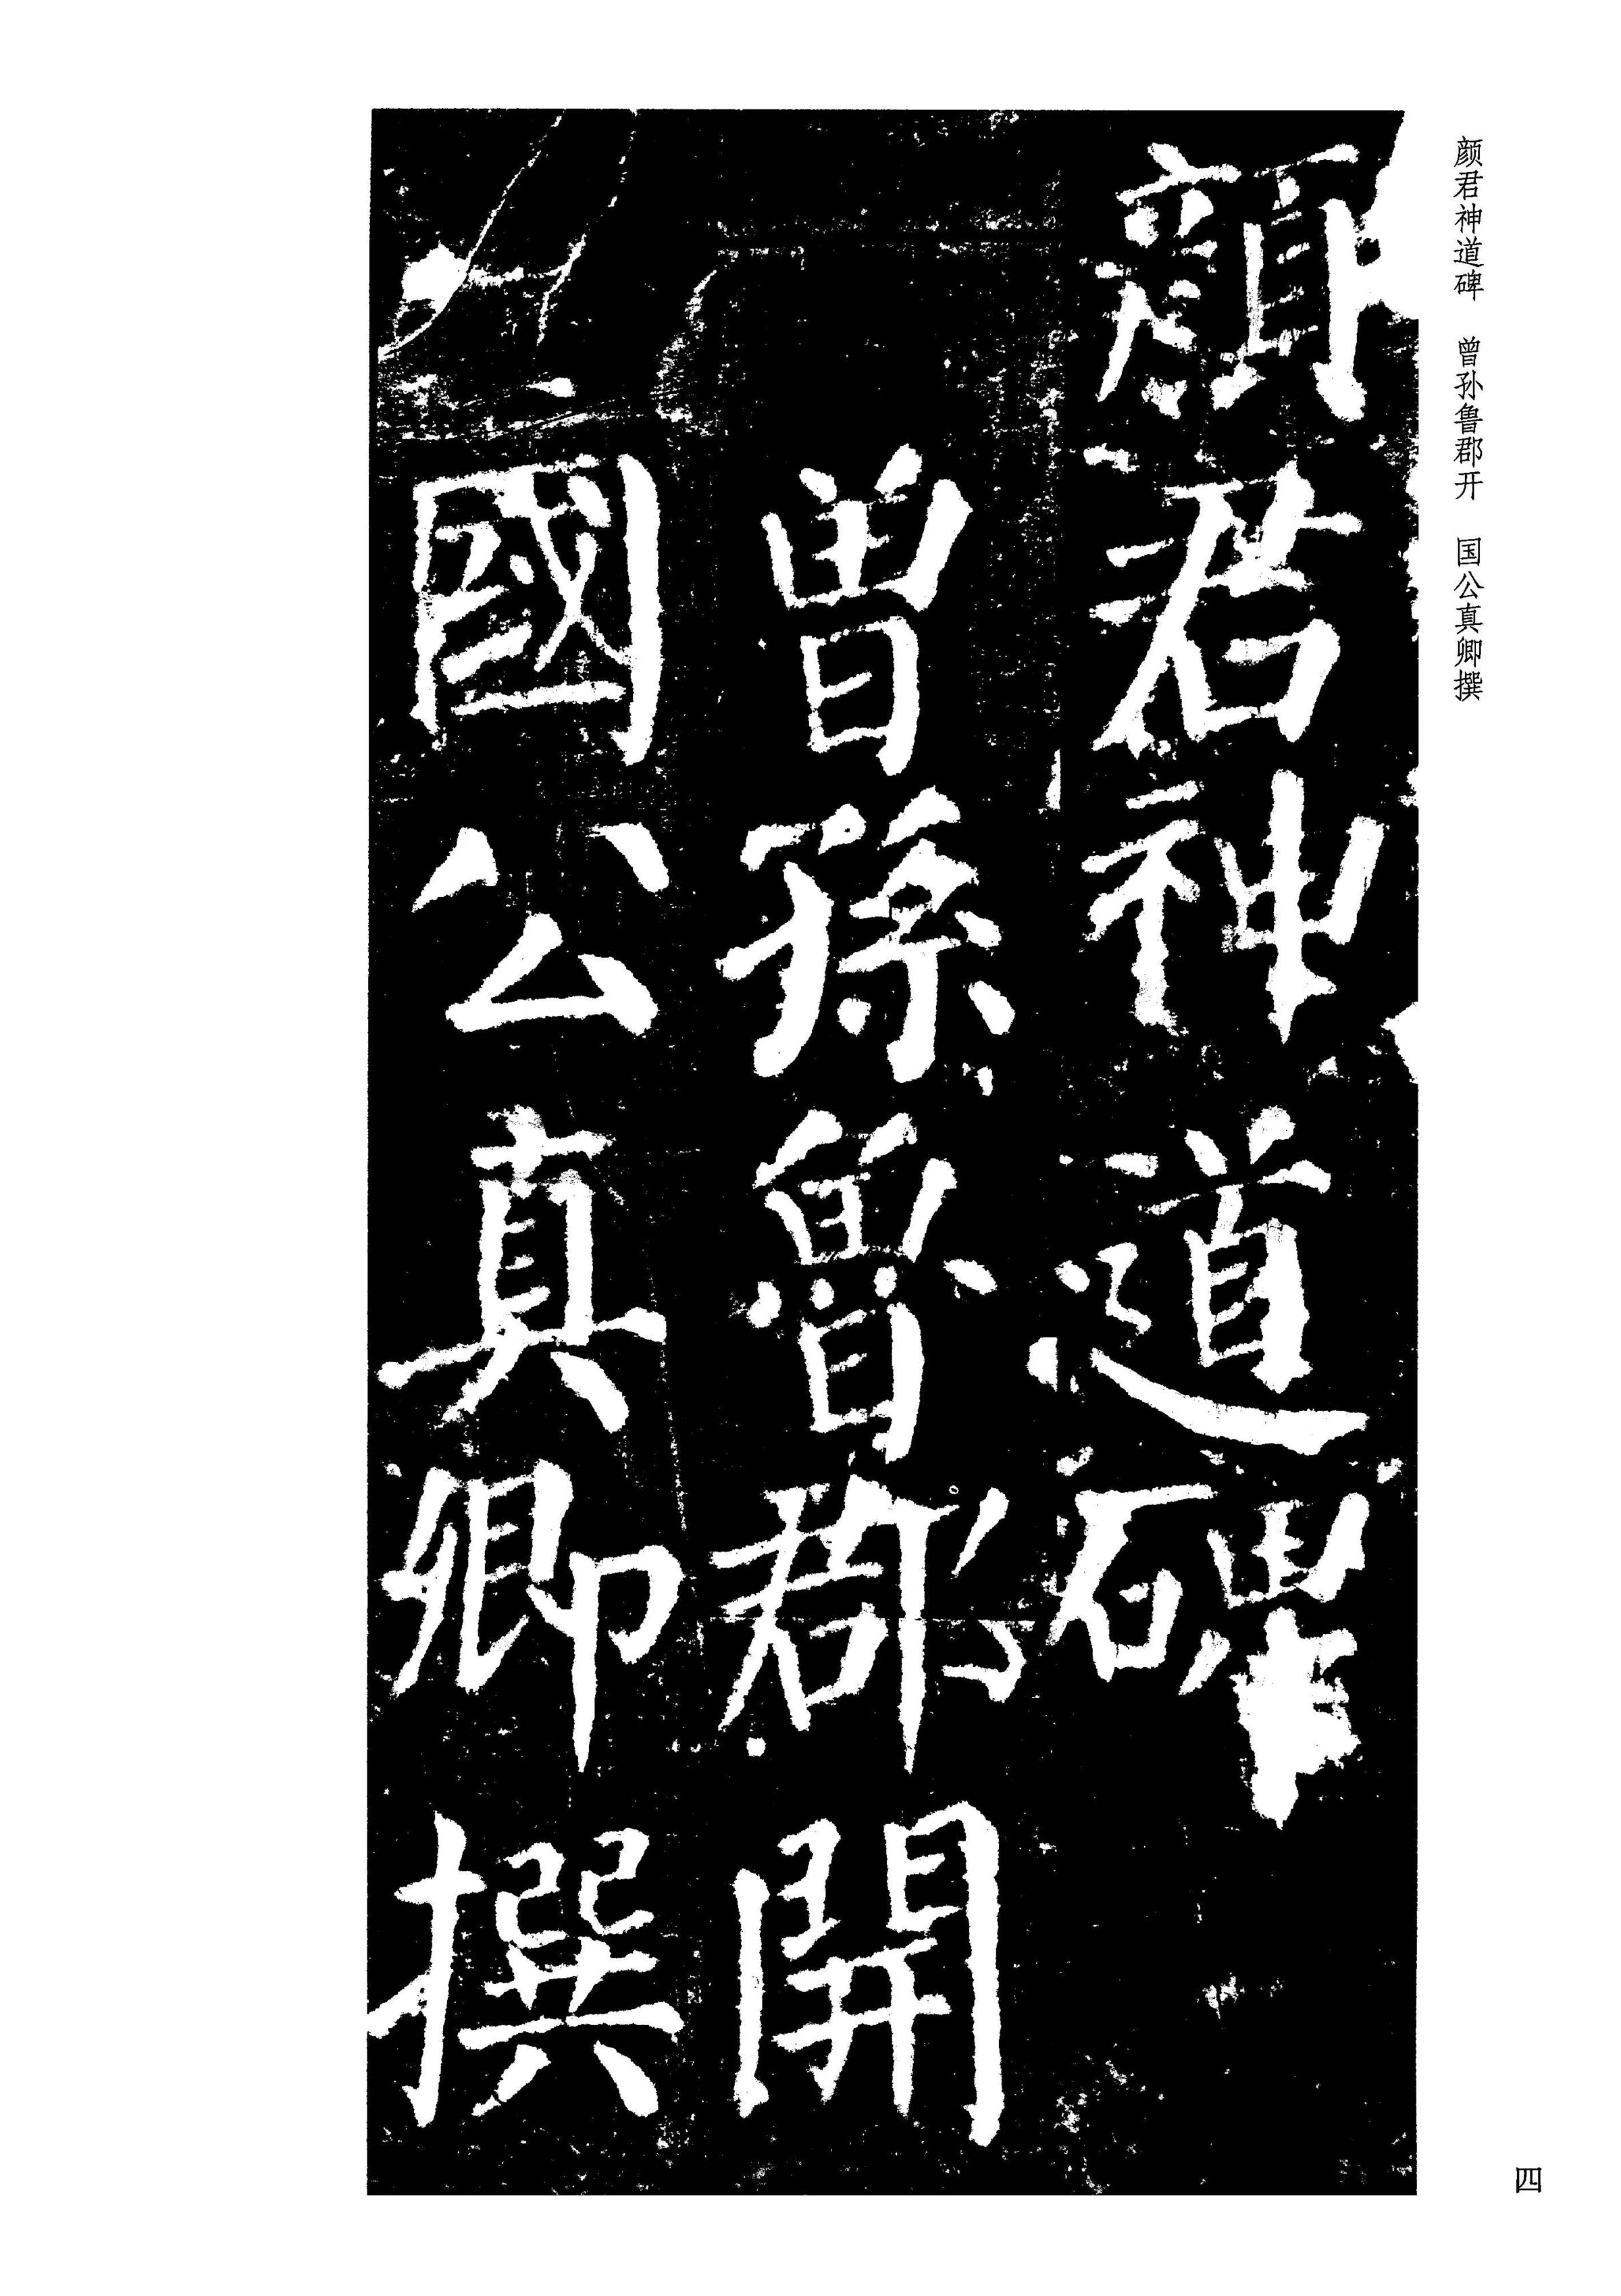 颜君神道碑　曾孙鲁郡开　国公真卿撰
顔君神道碑
曾孫魯郡開
國公真卿撰
四